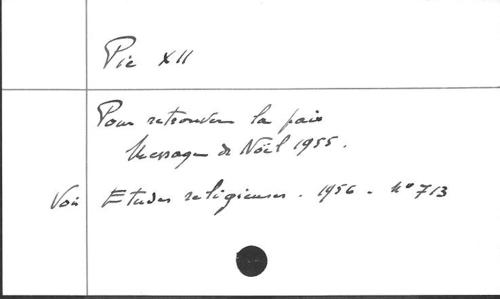 Pie XII
Pour retrouver la paix
Message de Noël 1955.
Voir Etudes religieuses. 1956 - N° 713